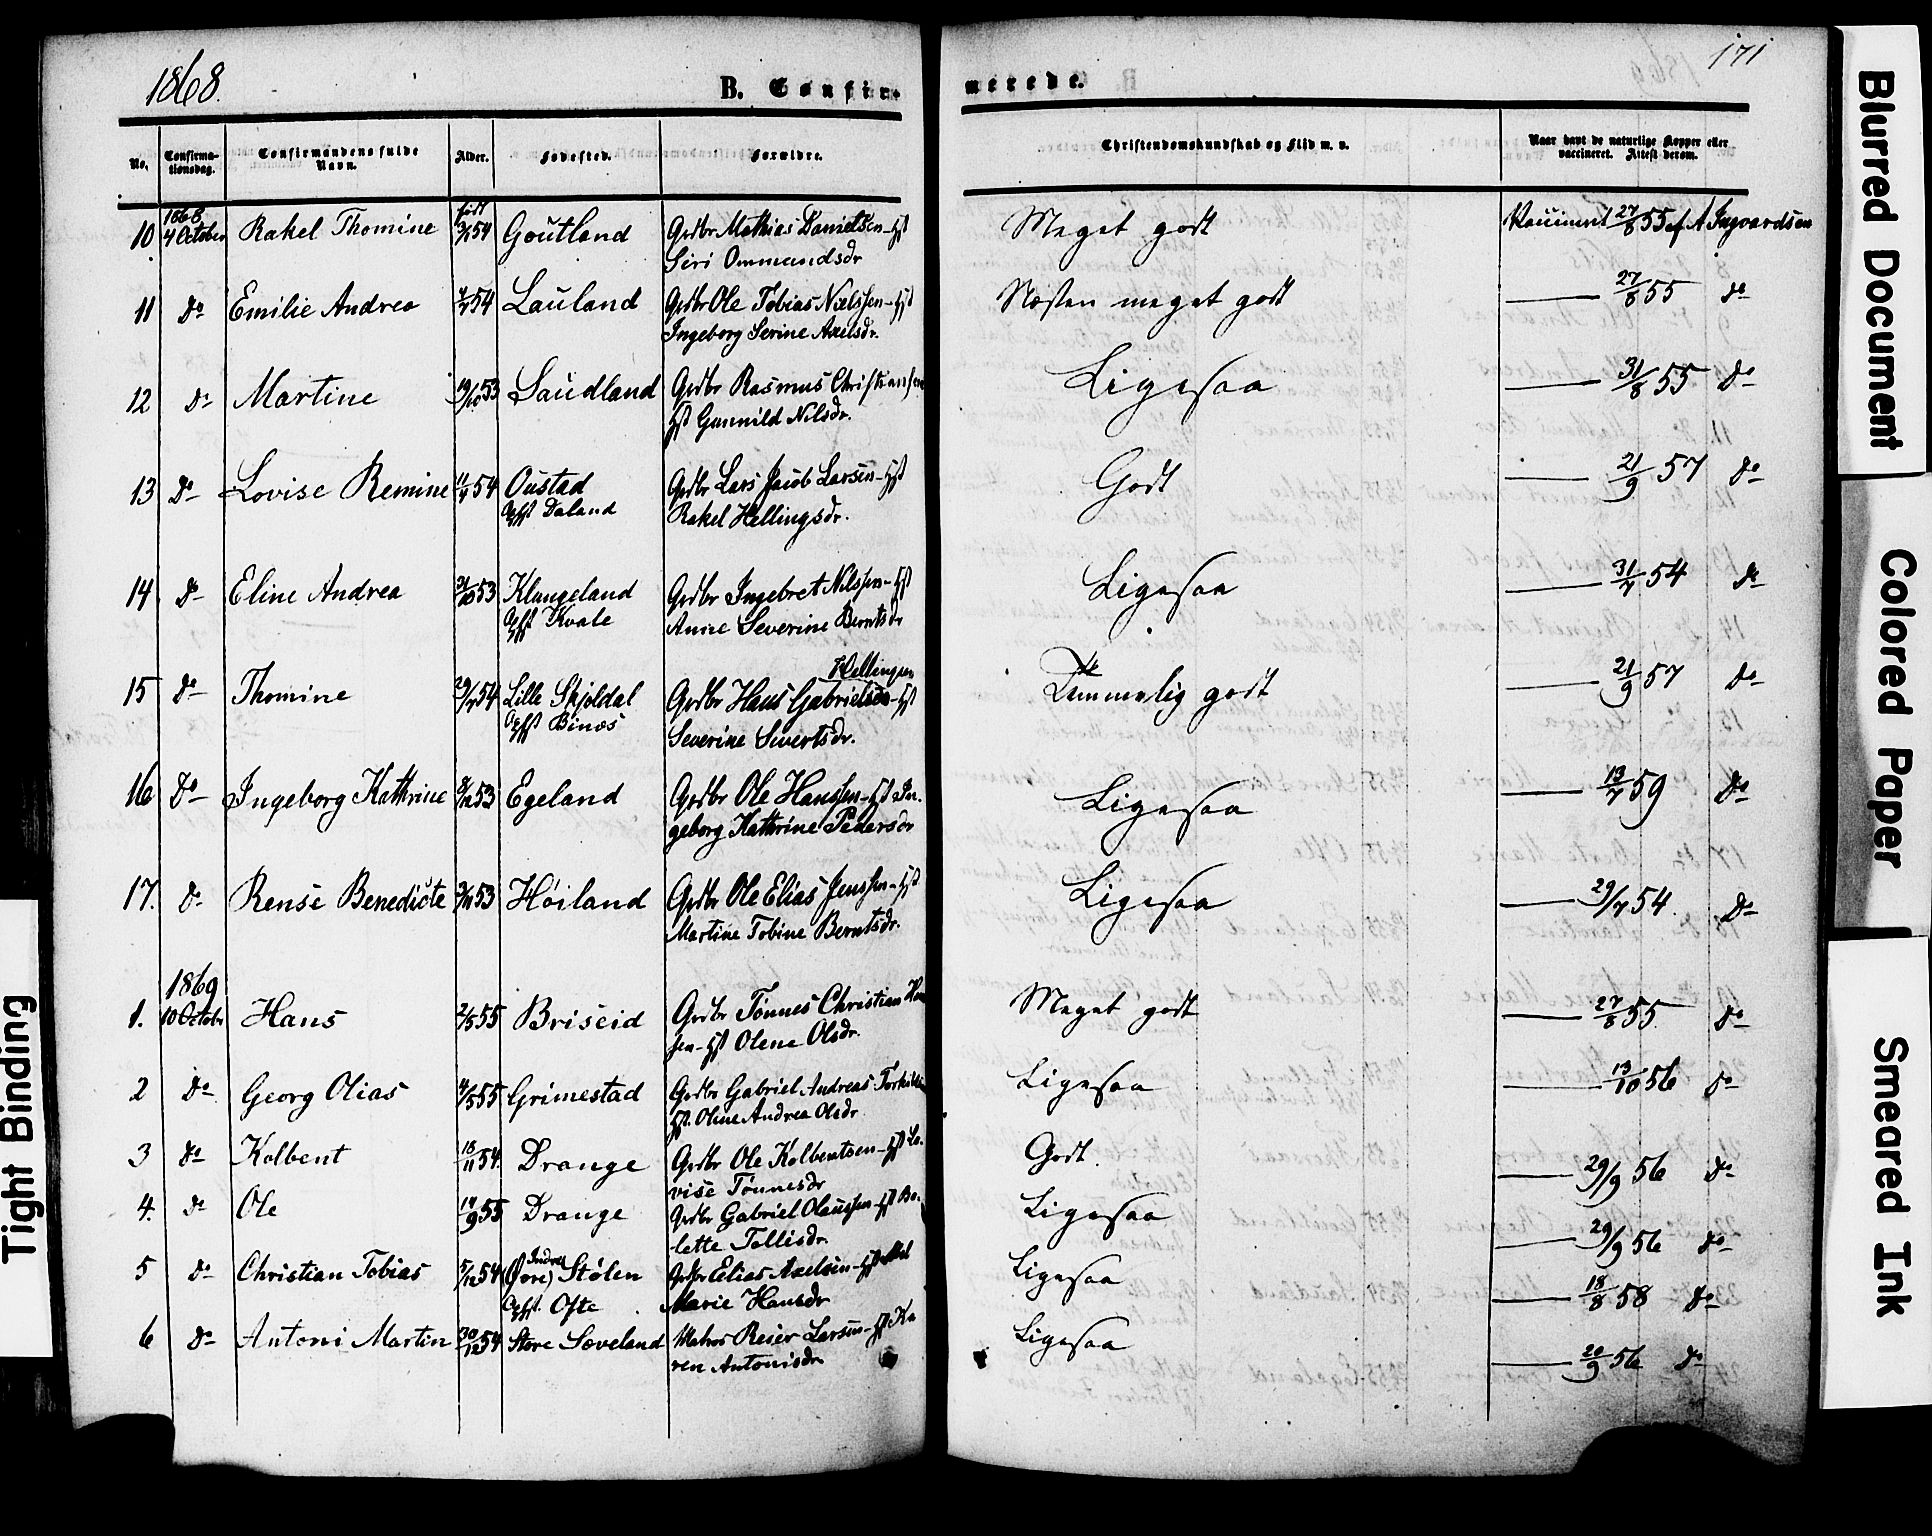 1868.
B. Confir-
merede.
171
No.
Confirma-
tionsdag.
Confirmandens fulde
Navn.
Alder.
Fødested.
Forældre.
Christendomskundskab og Flid m. v.
Naar havt de naturlige Kopper eller
vaccineret. Attest derom.
1868 født
10 4 October Rakel Thomine 54 Goutland Grdbr Mathias Danielsen - Hst
Siri Ommundsdr
Meget godt Vaccineret 27/8 55 af A Ingvardsen
11 do Emilie Andrea 54 Lauland Grdbr Ole Tobias Nielsen - Hst
Ingeborg Serine Axelsdr.
Næsten meget godt 27/8 55 do
12 do Martine 19/10 53 Saudland Grdbr Rasmus Christiansen
Hst Gunnild Nilsdr.
Ligesaa 31/8 55 do
13 do Lovise Remine 11/4 54 Oustad Grdbr Lars Jacob Larsen - Hst
Opfst Daland Rakel Hellingsdr.
Godt 21/9 57 do
14 do Eline Andrea 31/10 53 Klungeland Grdbr Ingebret Nilssen - Hst
Opfst Kvale Anne Severine Berntsdr
Ligesaa 31/7 54 do
Hellingsen
15 do Thomine 29/7 54 Lille Skjoldal Grdbr Hans Gabrielsen - Hst
Opfst Binæs Severine Sivertsdr.
Temmelig godt 21/9 57 do
16 do Ingeborg Kathrine 53 Egeland Grdbr Ole Hanssen - Hst In-
geborg Kathrine Pedersdr
Ligesaa 13/7 59 do
17. do Rense Benedicte 53 Høiland Grdbr Ole Elias Jenssen - Hst
Martine Tobine Berntsdr.
Ligesaa 29/7 54. do
1869
1. 10 Octobr Hans 2/5 55 Briseid Grdbr Tønnes Christian Han
sen - Hst Olene Olsdr.
Meget godt 27/8 55. do
2 do Georg Olias 4/5 55 Grimestad Grdbr Gabriel Andreas Torkilds
Hst. Oline Andrea Olsdr.
Ligesaa 13/10 56 do
3 do Kolbent 18/11 54. Drange Grdbr Ole Kolbentsen - Hst Lo-
vise Tønnesdr
Godt. 29/9 56 do
4. do Ole 14/9 55 Drange Grdbr Gabriel Olaussen - Hst Bo-
lette Tollisdr.
Ligesaa 29/9 56 do
Indre
5 do Christian Tobias 5/12 54 (Øvre) Stølen Grdbr Elias Axelsen - Hst
Opfst. Ofte Marie Hansdr
Ligesaa 18/8 58 do
6 do Antoni Martin 30/12 54 Store Sæveland Matros Reier Larsen - Hst Ka
ren Antonisdr.
Ligesaa 20/9 56 do
Blurred Document
Colored Paper
Smeared Ink
Tight Binding